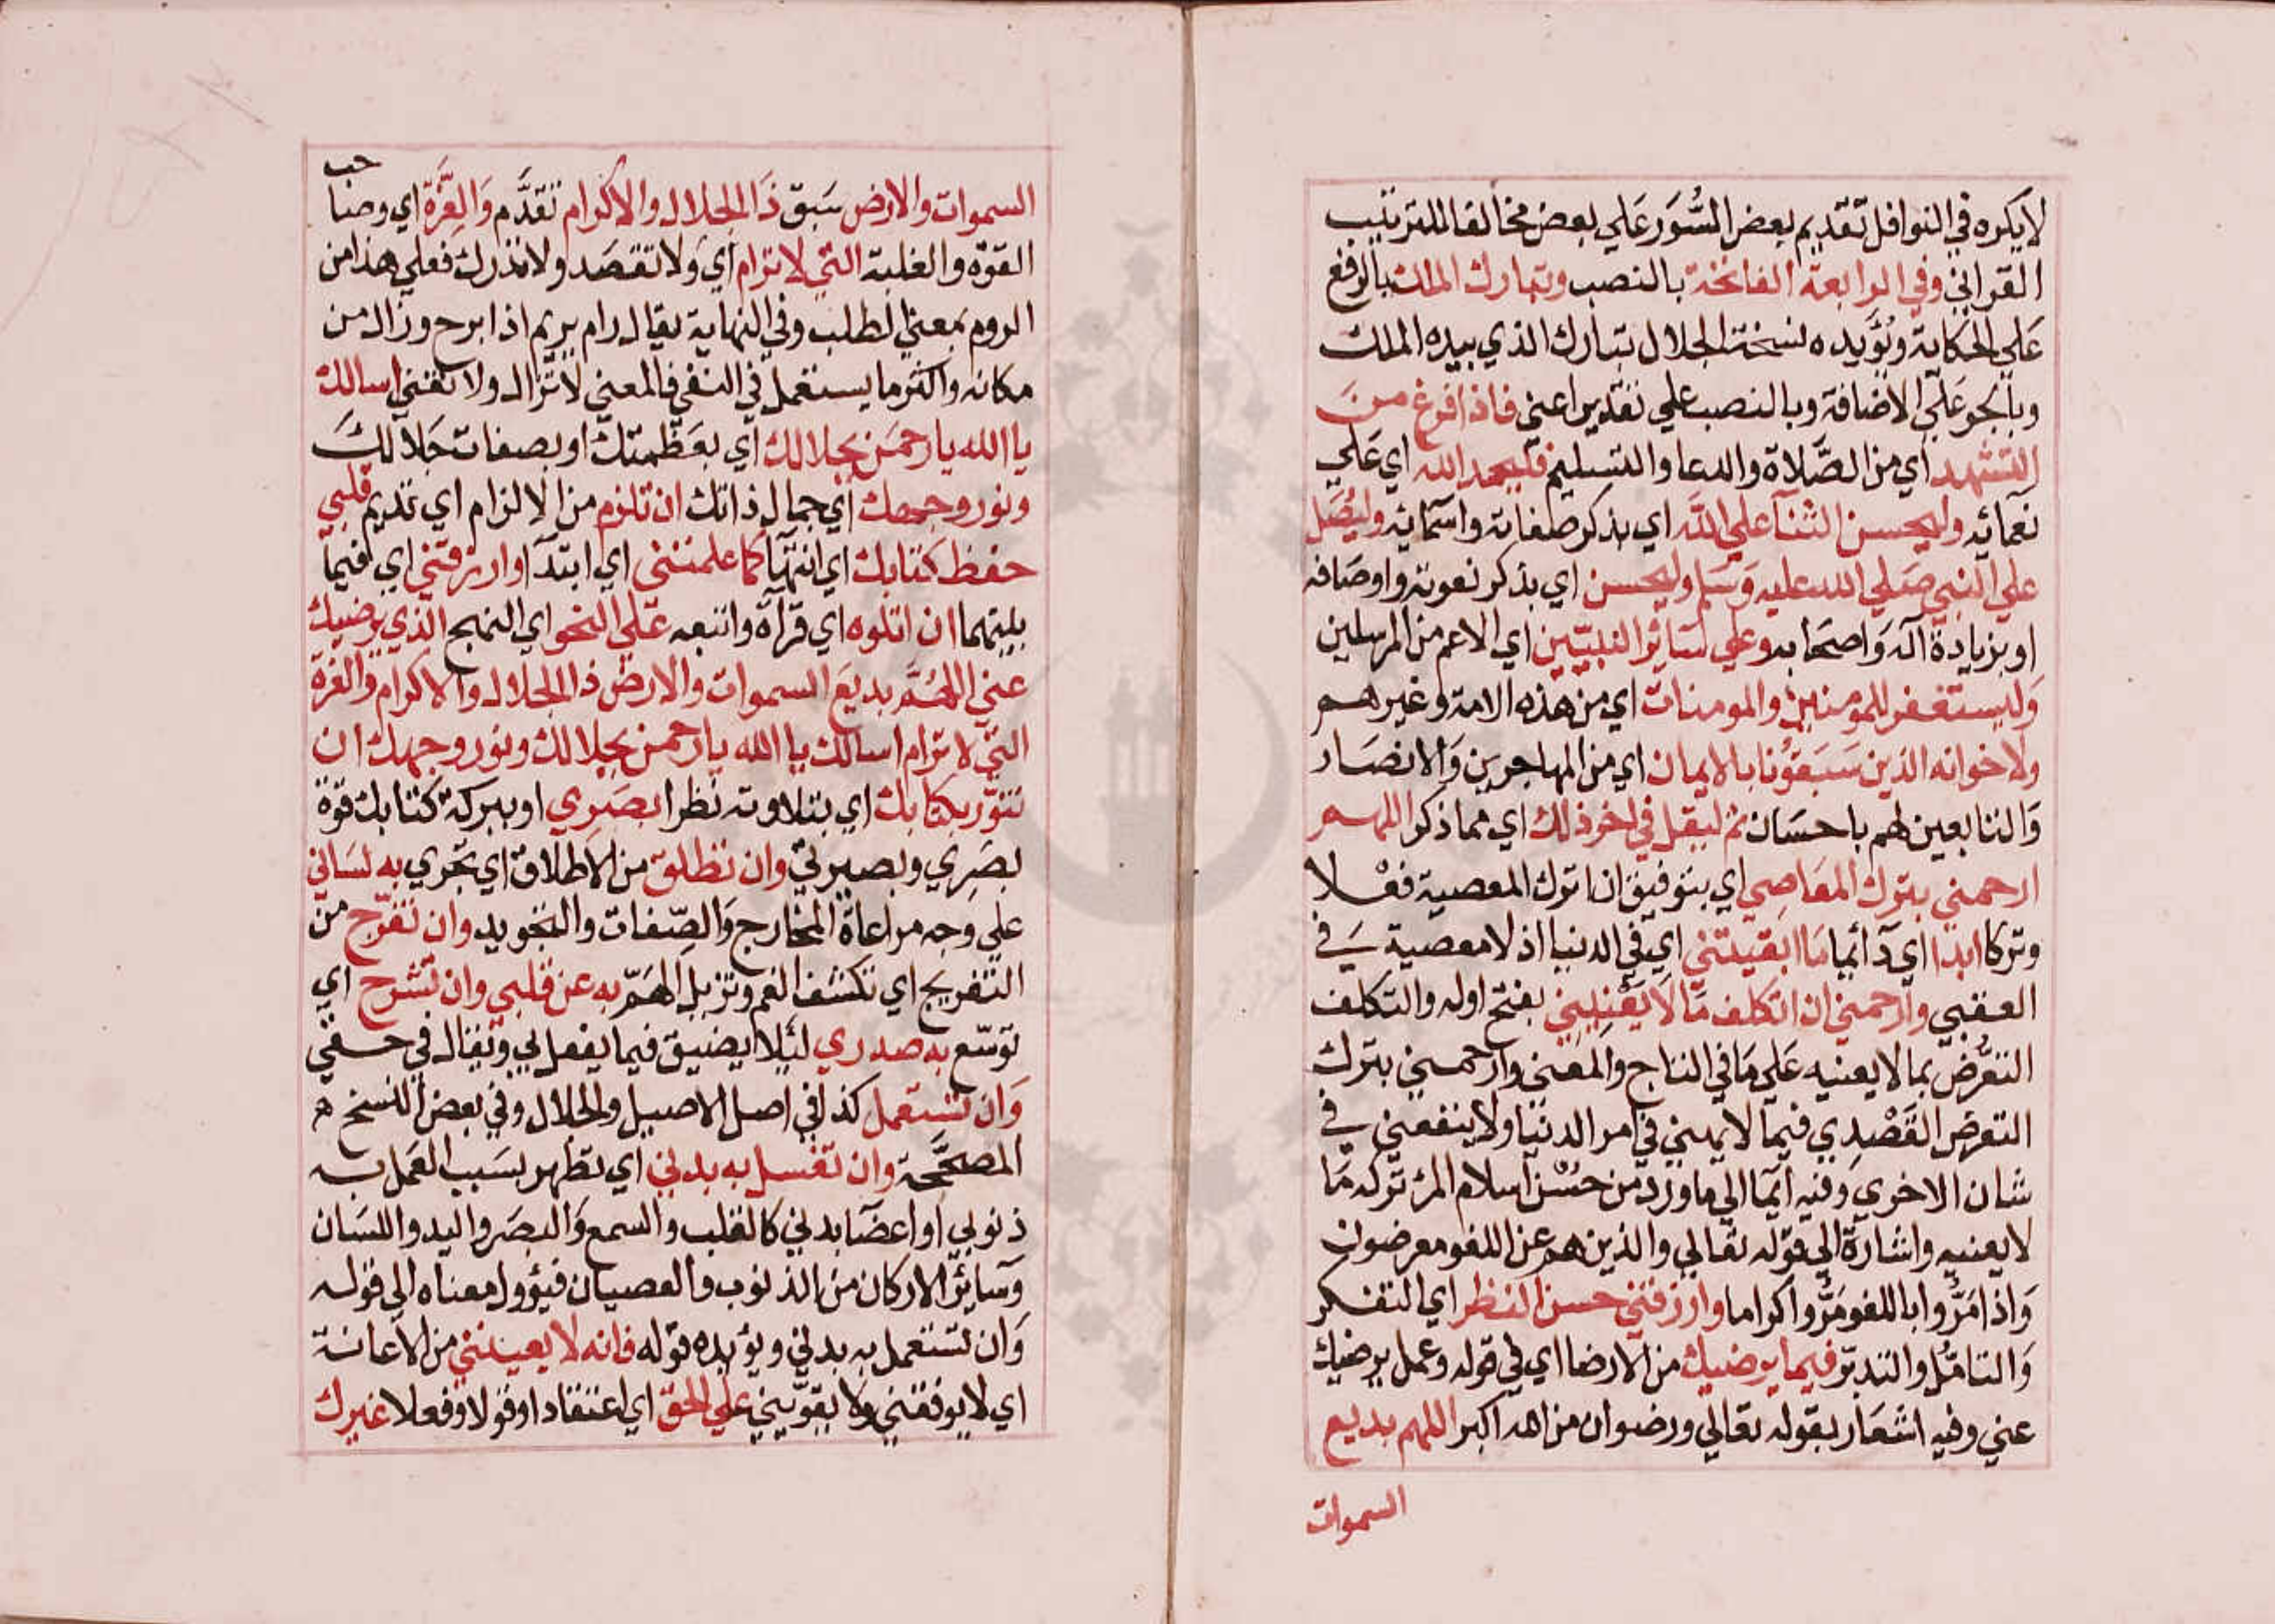 لا يكره في النوافل تقديم بعض السور علي بعض مخالفا للترتيب
القراني وفي الرابعة الفاتحة بالنصب وتبارك الملك بالرفع
علي الحكاية ويؤيده نسخة الجلال تبارك الذي بيده الملك
وبالجر علي الاضافة وبالنصب علي تقدير اعني فاذا فرغ من
التشهد اي من الصلاة والدعا والتسليم فليحمد الله اي علي
نعمائه وليحسن الثنآ علي الله اي بذكر صفاته واسمائه وليصل
علي النبي صلي الله عليه وسلم وليحسن اي بذكر نعوته واوصافه
او بزيادة اله واصحابه وعلي سائر النبيين اي الاعم من المرسلين
وليستغفر للمومنين والمومنات اي من هذه الامة وغيرهم
ولاخوانه الذين سبقونا بالايمان اي من المهاجرين والانصار
والتابعين لهم باحسان ثم ليقل في اخر ذلك اي مما ذكر اللهم
ارحمني بترك المعاصي اي بتوفيق ان اترك المعصية فعلا
وتركا ابدا اي دآئما ما ابقيتني اي في الدنيا اذ لا معصية في
العقبي وارحمني ان اتكلف ما لا يعنيني بفتح اوله والتكلف
التعرض بما لا يعنيه علي ما في التاج والمعني وارحمني بترك
التعرض القصدي فيما لا يهمني في امر الدنيا ولا ينفعني في
شان الاخري وفيه ايما الي ما ورد من حسن اسلام المرء تركه ما
لا يعنيه واشارة الي قوله تعالي والذين هم عن اللغو معرضون
واذا مروا باللغو مروا كراما وارزقني حسن النظر اي التفكر
والتامل والتدبر فيما يرضيك من الارضا اي في قوله وعمل يرضيك
عني وفيه اشعار بقوله تعالي ورضوان من الله اكبر اللهم بديع
السموات
السموات والارض سبق ذا الجلال والاكرام تقدم والعزة اي وصاحب
القوة والغلبة التي لا ترام اي ولا تقصد ولا تدرك فعلي هذا من
الروم بمعني الطلب وفي النهاية يقال رام يريم اذا برح وزال من
مكانه واكثر ما يستعمل في النفي فالمعني لا تزال ولا تفني اسالك
يا الله يا رحمن بجلالك اي بعظمتك او بصفات جلالك
ونور وجهك اي جمال ذاتك ان تلزم من الالزام اي تديم قلبي
حفظ كتابك اي انتهآ كما علمتني اي ابتدآ وارزقني اي فيما
بينهما ان اتلوه اي قرآه واتبعه علي النحو اي النهج الذي يرضيك
عني اللهم بديع السموات والارض ذا الجلال والاكرام والعزة
التي لا ترام اسالك يا الله يا رحمن بجلالك ونور وجهك ان
تنور بكتابك اي بتلاوته نظرا بصري او ببركة كتابك قوة
بصري وبصيرتي وان تطلق من الاطلاق اي تجري به لساني
علي وجه مراعاة المخارج والصفات والتجويد وان تفرج من
التفريج اي تكشف الغم وتزيل الهم به عن قلبي وان تشرح اي
توسع به صدري لئلا يضيق فيما يفعل بي ويقال في حقي
وان تستعمل كذا في اصل الاصيل والجلال وفي بعض النسخ
المصححة وان تغسل به بدني اي تطهر بسبب العمل به
ذنوبي او اعضآ بدني كالقلب والسمع والبصر واليد واللسان
وسائر الاركان من الذنوب والعصيان فيؤول معناه الي قوله
وان تستعمل به بدني ويؤيده قوله فانه لا يعينني من الاعانة
اي لا يوفقني ولا يقويني علي الحق اي اعتقادا وقولا وفعلا غيرك